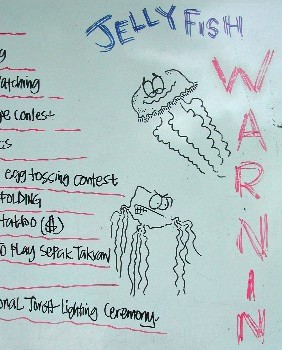 JELLY FISH
WARNIN
contest
egg tossing contest
FOLDING
tattoo ($)
O PLAY SEPAK TAKRAW
onal Torch Lighting Ceremony.